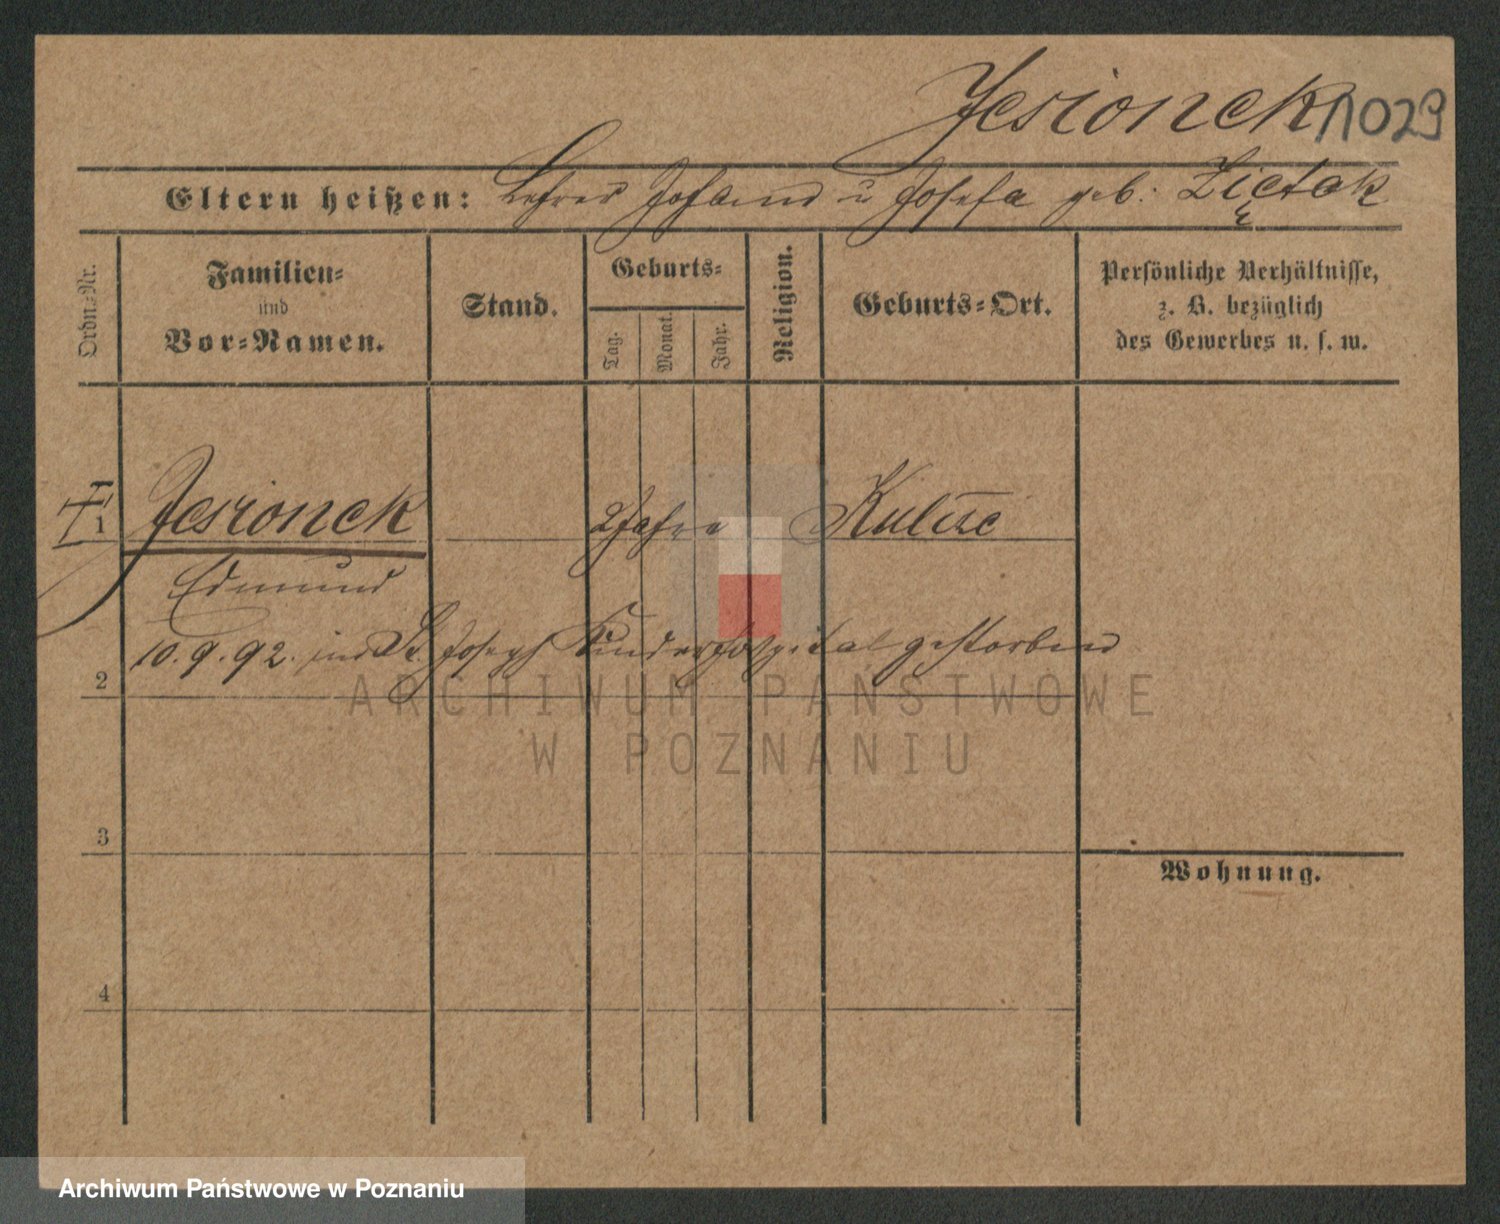 Jesionek 1023
Eltern heißen: Lehrer Johann u Josefa geb: Ziętak
Ordn.-Nr.
Familien-
und
Vor-Namen.
Stand.
Geburts-
Tag.
Monat.
Jahr.
Religion.
Geburts-Ort.
Persönliche Verhältnisse,
z. B. bezüglich
des Gewerbes u. s. w.
1 Jesionek 2 Jahre
Edmund
10.9.92. im St. Joseph Kinderhospital gestorben
2
ARCHIWUM PAŃSTWOWE
W POZNANIU
3
Wohnung.
4
Archiwum Państwowe w Poznaniu